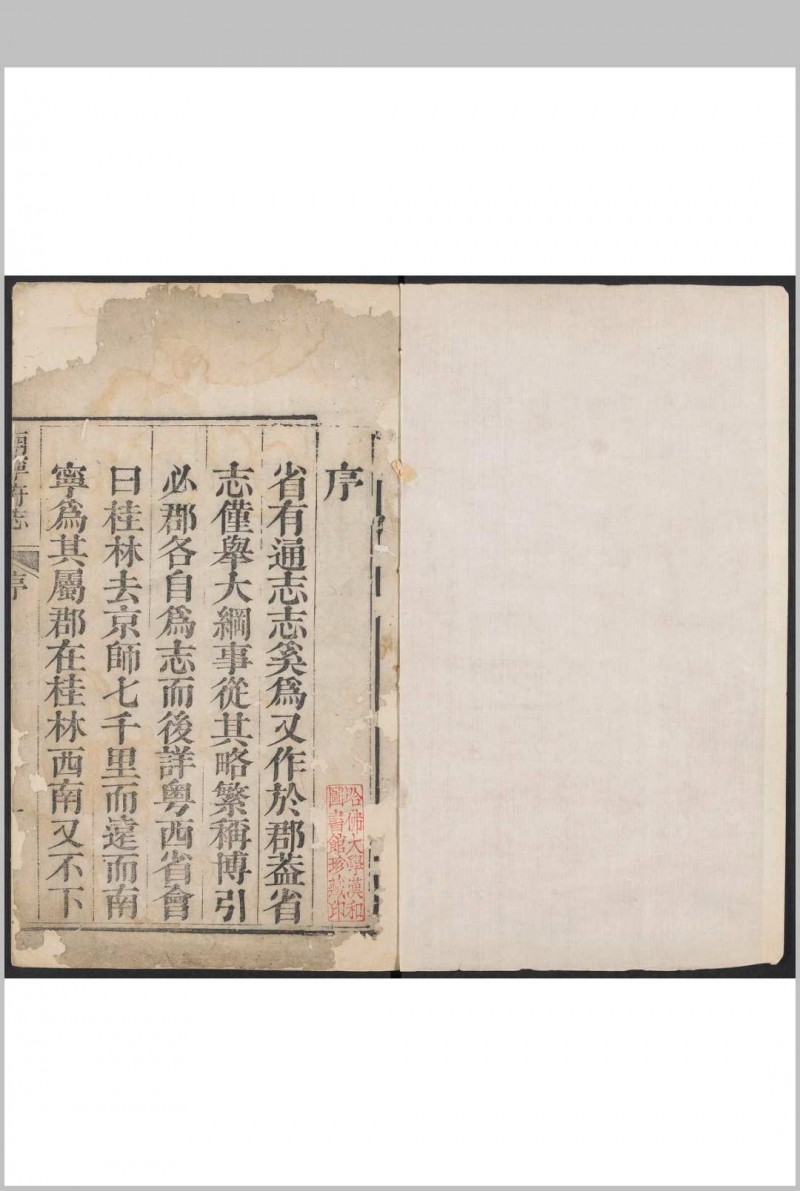 序
省有通志志奚爲又作於郡蓋省
志僅舉大綱事從其略繁稱博引
必郡各自爲志而後詳粵西省會
曰桂林去京師七千里而遠而南
寧爲其屬郡在桂林西南又不下
南寧府志
序
哈佛大學漢和
圖書館珍藏印